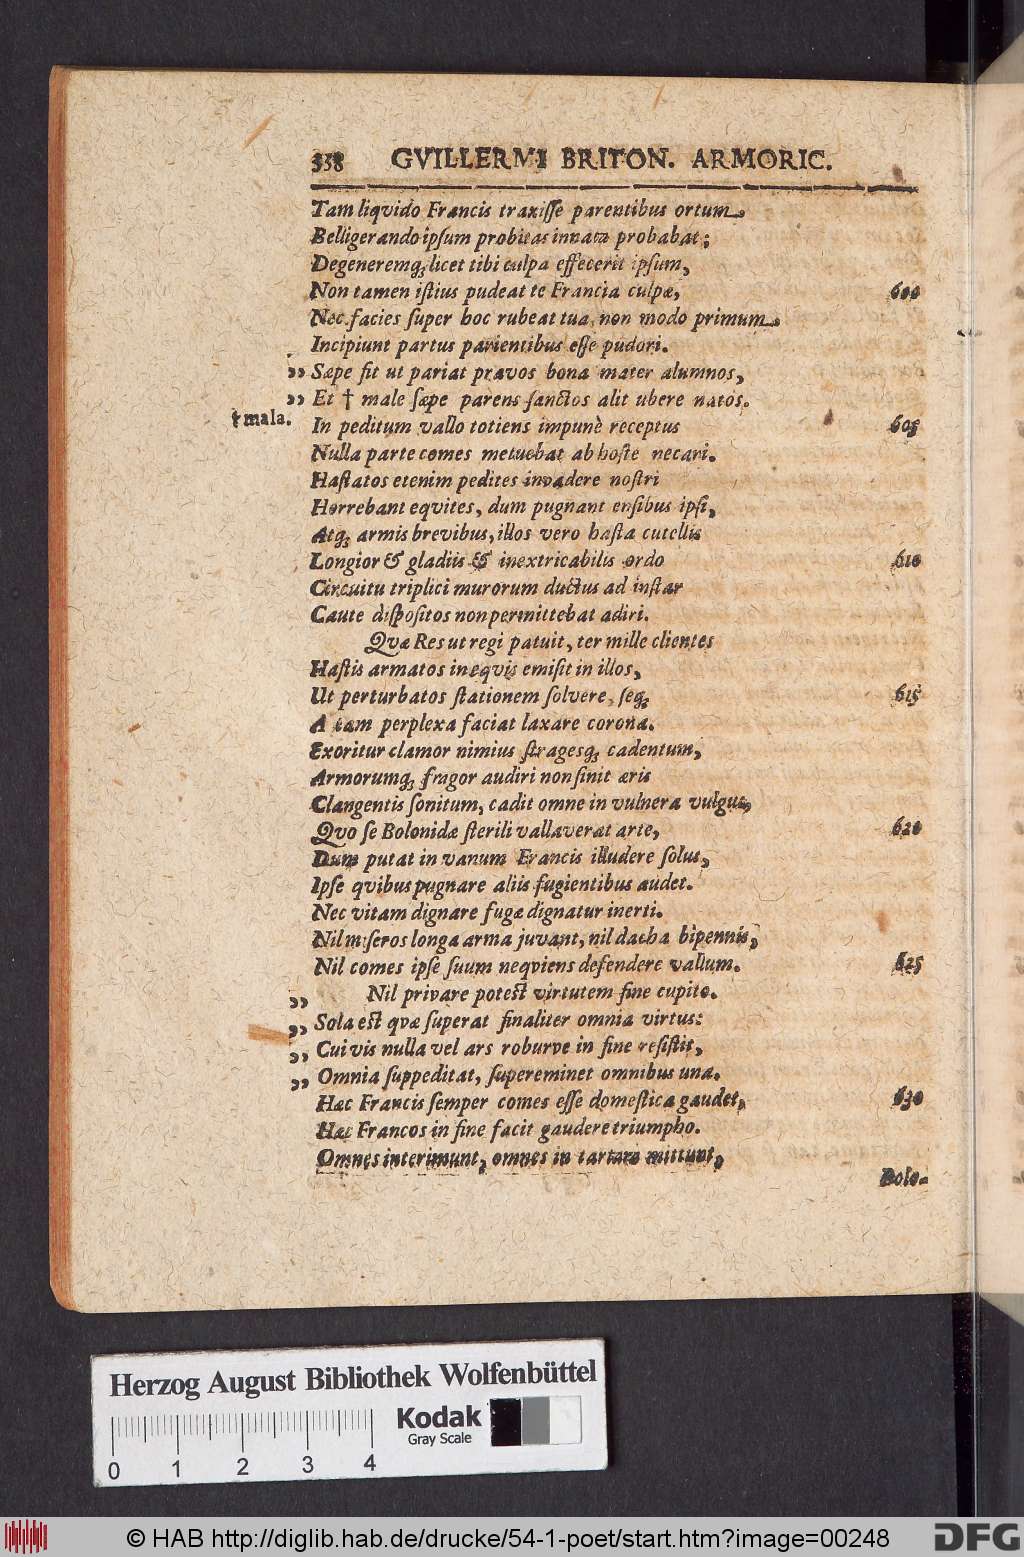 338 GVILLERMI BRITON. ARMORIC.
Tam liqvido Francis traxiſſe parentibus ortum.
Belligerando ipſum probitas innata probabat;
Degeneremq; licet tibi culpa effecerit ipſum,
Non tamen iſtius pudeat te Francia culpæ, 600
Nec facies ſuper hoc rubeat tua, non modo primum.
Incipiunt partus parientibus eſſe pudori.
„ Sæpe fit ut pariat pravos bona mater alumnos,
„ Et † male ſæpe parens ſanctos alit ubere natos.
† mala.
In peditum vallo totiens impunè receptus 605
Nulla parte comes metuebat ab hoſte necari.
Haſtatos etenim pedites invadere noſtri
Horrebant eqvites, dum pugnant enſibus ipſi,
Atq; armis brevibus, illos vero haſta cutellis
Longior & gladiis & inextricabilis ordo 610
Circuitu triplici murorum ductus ad inſtar
Caute diſpoſitos non permittebat adiri.
Qvæ Res ut regi patuit, ter mille clientes
Haſtis armatos in eqvis emiſit in illos,
Ut perturbatos ſtationem ſolvere, ſeq; 615
A tam perplexa faciat laxare corona.
Exoritur clamor nimius ſtragesq; cadentum,
Armorumq; fragor audiri non ſinit æris
Clangentis ſonitum, cadit omne in vulnera vulgus,
Qvo ſe Bolonidæ ſterili vallaverat arte, 620
Dum putat in vanum Francis illudere ſolus,
Ipſe qvibus pugnare aliis fugientibus audet.
Nec vitam dignare fugæ dignatur inerti.
Nil miſeros longa arma juvant, nil dacha bipennis,
Nil comes ipſe ſuum neqviens defendere vallum. 625
„ Nil privare poteſt virtutem fine cupito.
„ Sola eſt qvæ ſuperat finaliter omnia virtus:
„ Cui vis nulla vel ars roburve in fine reſiſtit,
„ Omnia ſuppeditat, ſupereminet omnibus una.
Hæc Francis ſemper comes eſſe domeſtica gaudet, 630
Hæc Francos in fine facit gaudere triumpho.
Omnes interimunt, omnes in tartara mittunt,
Bolo-
Herzog August Bibliothek Wolfenbüttel
Kodak
Gray Scale
0 1 2 3 4
© HAB http://diglib.hab.de/drucke/54-1-poet/start.htm?image=00248
DFG